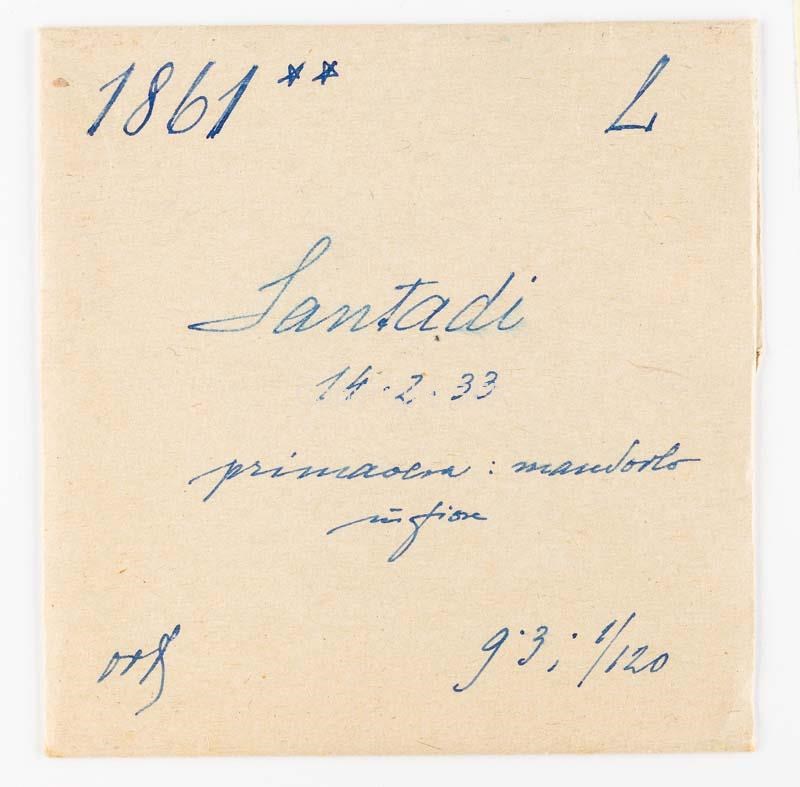 1861** L
Santadi
14.2.33
primavera: mandorlo
in fiore
9·3; 1/120